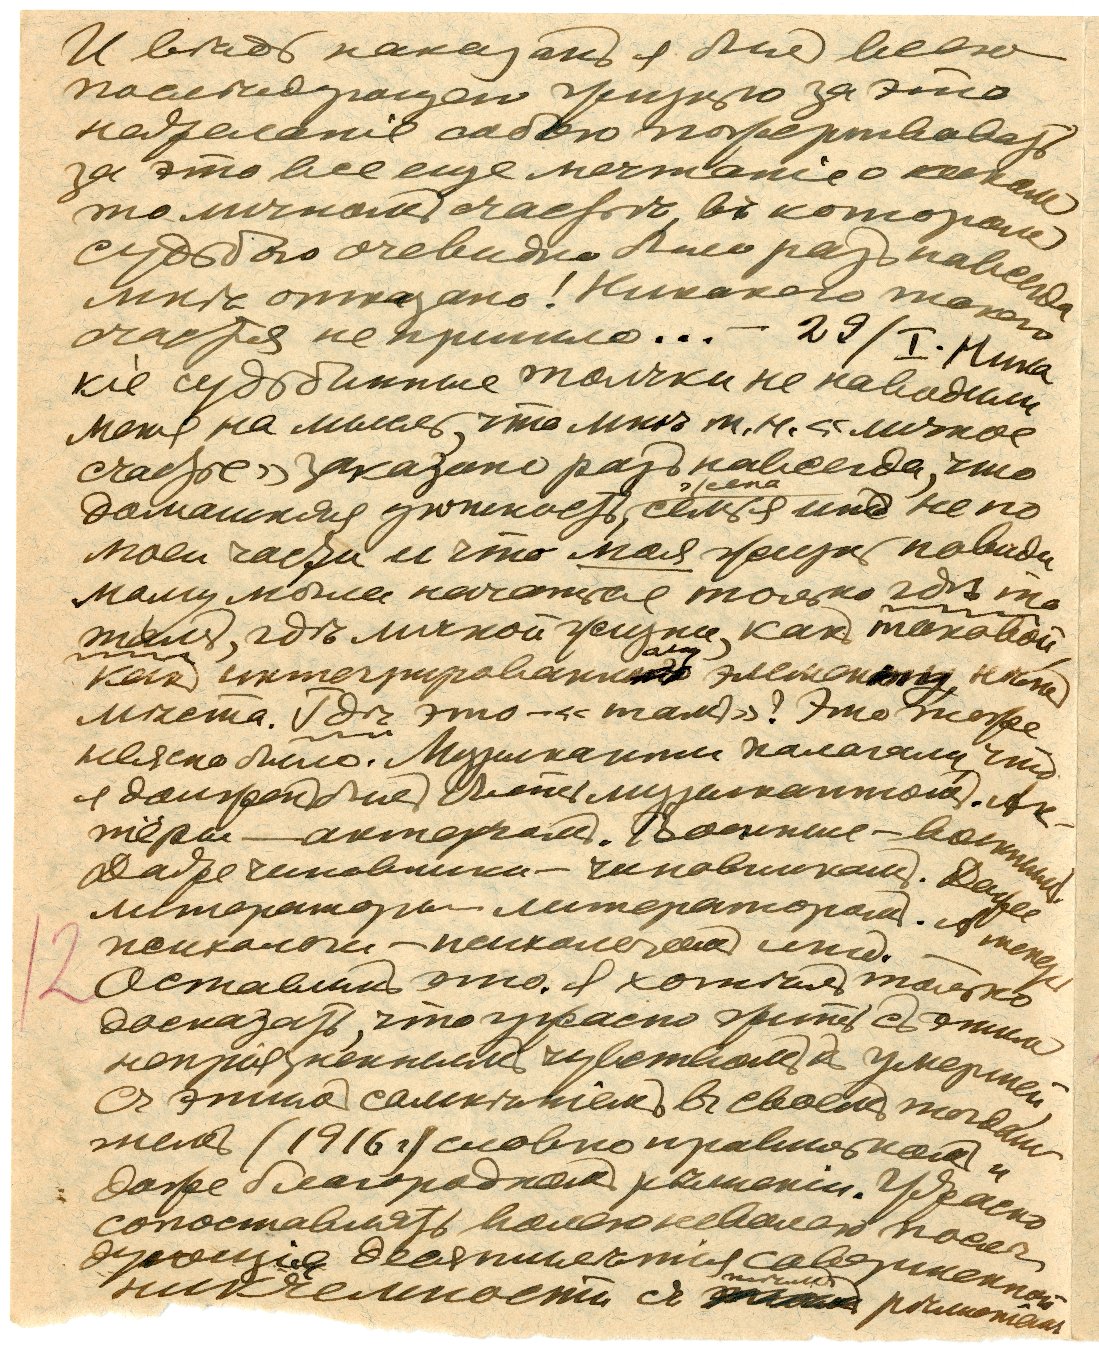 И вѣдь наказанъ я былъ всею
послѣдующею жизнью за это
нежеланіе собою пожертвовать
за это все еще мечтаніе о какомъ
то личномъ счастьѣ, въ которомъ
судьбою очевидно было разъ навсегда
мнѣ отказано! Никакого такого
счастья не пришло... — 29/I. Ника
кіе судьбинные толчки не наводили
меня на мысль, что мнѣ т. н. «личное
счастье» заказано разъ навсегда, что
жена
домашняя уютность, семья итд не по
моей части и что моя жизнь повиди
мому могла начаться только гдѣ то
тамъ, гдѣ личной жизни, какъ таковой,
какъ интегрированному элементу, нѣтъ
мѣста. Гдѣ это — «тамъ»? Это тоже
неясно было. Музыканты полагали, что
я долженъ былъ быть музыкантомъ. Ак-
тёры — актеромъ. Военные — военнымъ.
Даже чиновники — чиновникомъ. Далее
литераторы — литераторомъ. А теперь
психологи — психологомъ итд.
12
Оставимъ это. Я хотѣлъ только
досказать, что ужасно жить съ этимъ
непріязненнымъ чувствомъ къ умершей,
съ этимъ сомнѣніемъ въ своемъ тогдаш-
немъ (1916 г.) словно правильномъ и
даже благородномъ рѣшеніи. Ужасно
сопоставлять волею неволею послѣ
дующія десятилѣтія совершенной
никчемности съ тѣмъ рѣшеніемъ